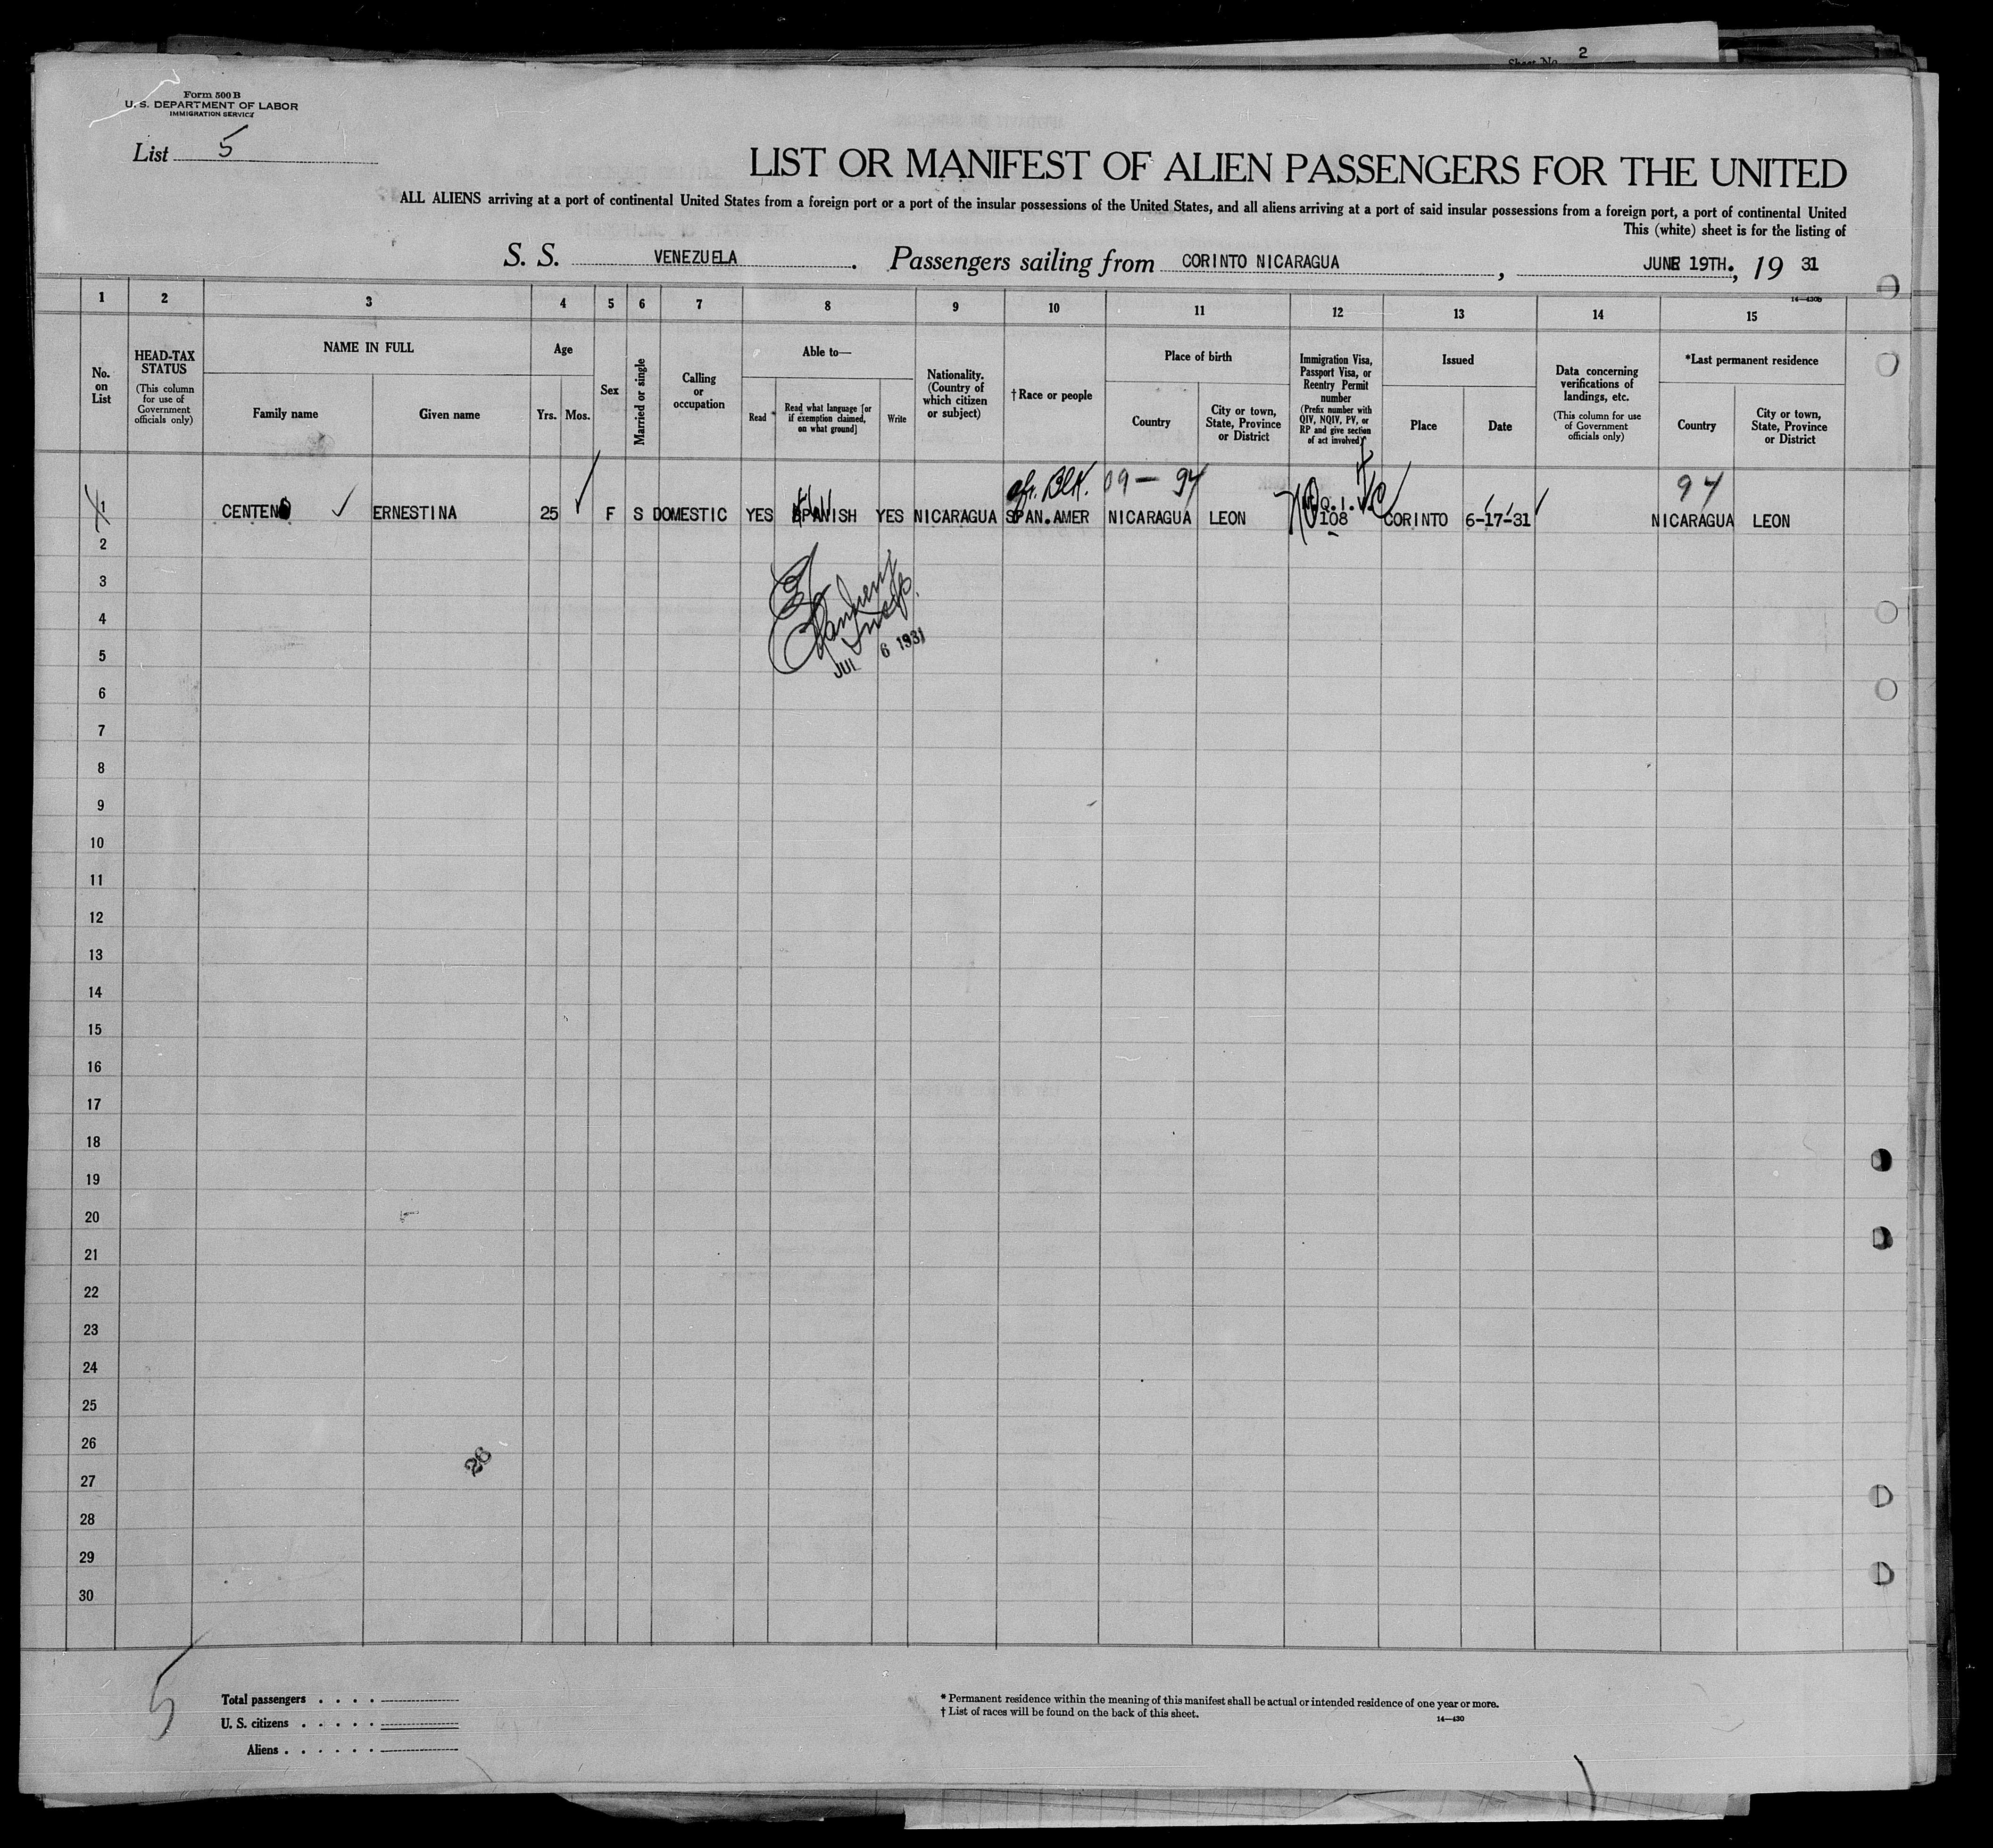 Sheet No. 2
Form 500 B
U. S. DEPARTMENT OF LABOR
IMMIGRATION SERVICE
List 5
LIST OR MANIFEST OF ALIEN PASSENGERS FOR THE UNITED
ALL ALIENS arriving at a port of continental United States from a foreign port or a port of the insular possessions of the United States, and all aliens arriving at a port of said insular possessions from a foreign port, a port of continental United
This (white) sheet is for the listing of
S. S. VENEZUELA. Passengers sailing from CORINTO NICARAGUA, JUNE 19TH., 19 31
14—430b
1 2 3 4 5 6 7 8 9 10 11 12 13 14 15
No. on List
HEAD-TAX STATUS
(This column for use of Government officials only)
NAME IN FULL
Family name
Given name
Age
Yrs. Mos.
Sex
Married or single
Calling or occupation
Able to—
Read
Read what language [or if exemption claimed, on what ground]
Write
Nationality. (Country of which citizen or subject)
† Race or people
Place of birth
Country
City or town, State, Province or District
Immigration Visa, Passport Visa, or Reentry Permit number
(Prefix number with QIV, NQIV, PV, or RP and give section of act involved)
Issued
Place
Date
Data concerning verifications of landings, etc.
(This column for use of Government officials only)
*Last permanent residence
Country
City or town, State, Province or District
Afr. Blk. 09 — 94 94
1 CENTENO ERNESTINA 25 F S DOMESTIC YES SPANISH YES NICARAGUA SPAN.AMER NICARAGUA LEON N.Q.I.V. 108 CORINTO 6-17-31 NICARAGUA LEON
2
3
4
JUL 6 1931
5
6
7
8
9
10
11
12
13
14
15
16
17
18
19
20
21
22
23
24
25
26
26
27
28
29
30
5
Total passengers . . . .
U. S. citizens . . . . .
Aliens . . . . . .
* Permanent residence within the meaning of this manifest shall be actual or intended residence of one year or more.
† List of races will be found on the back of this sheet.
14—430